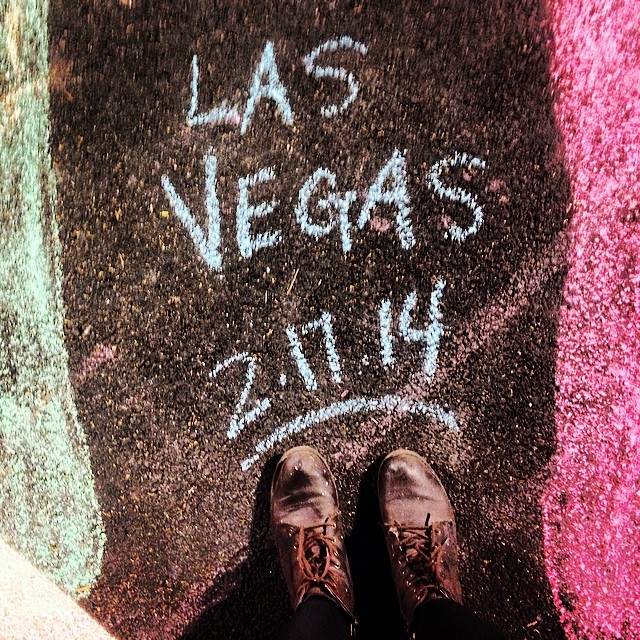 LAS
VEGAS
2.17.14